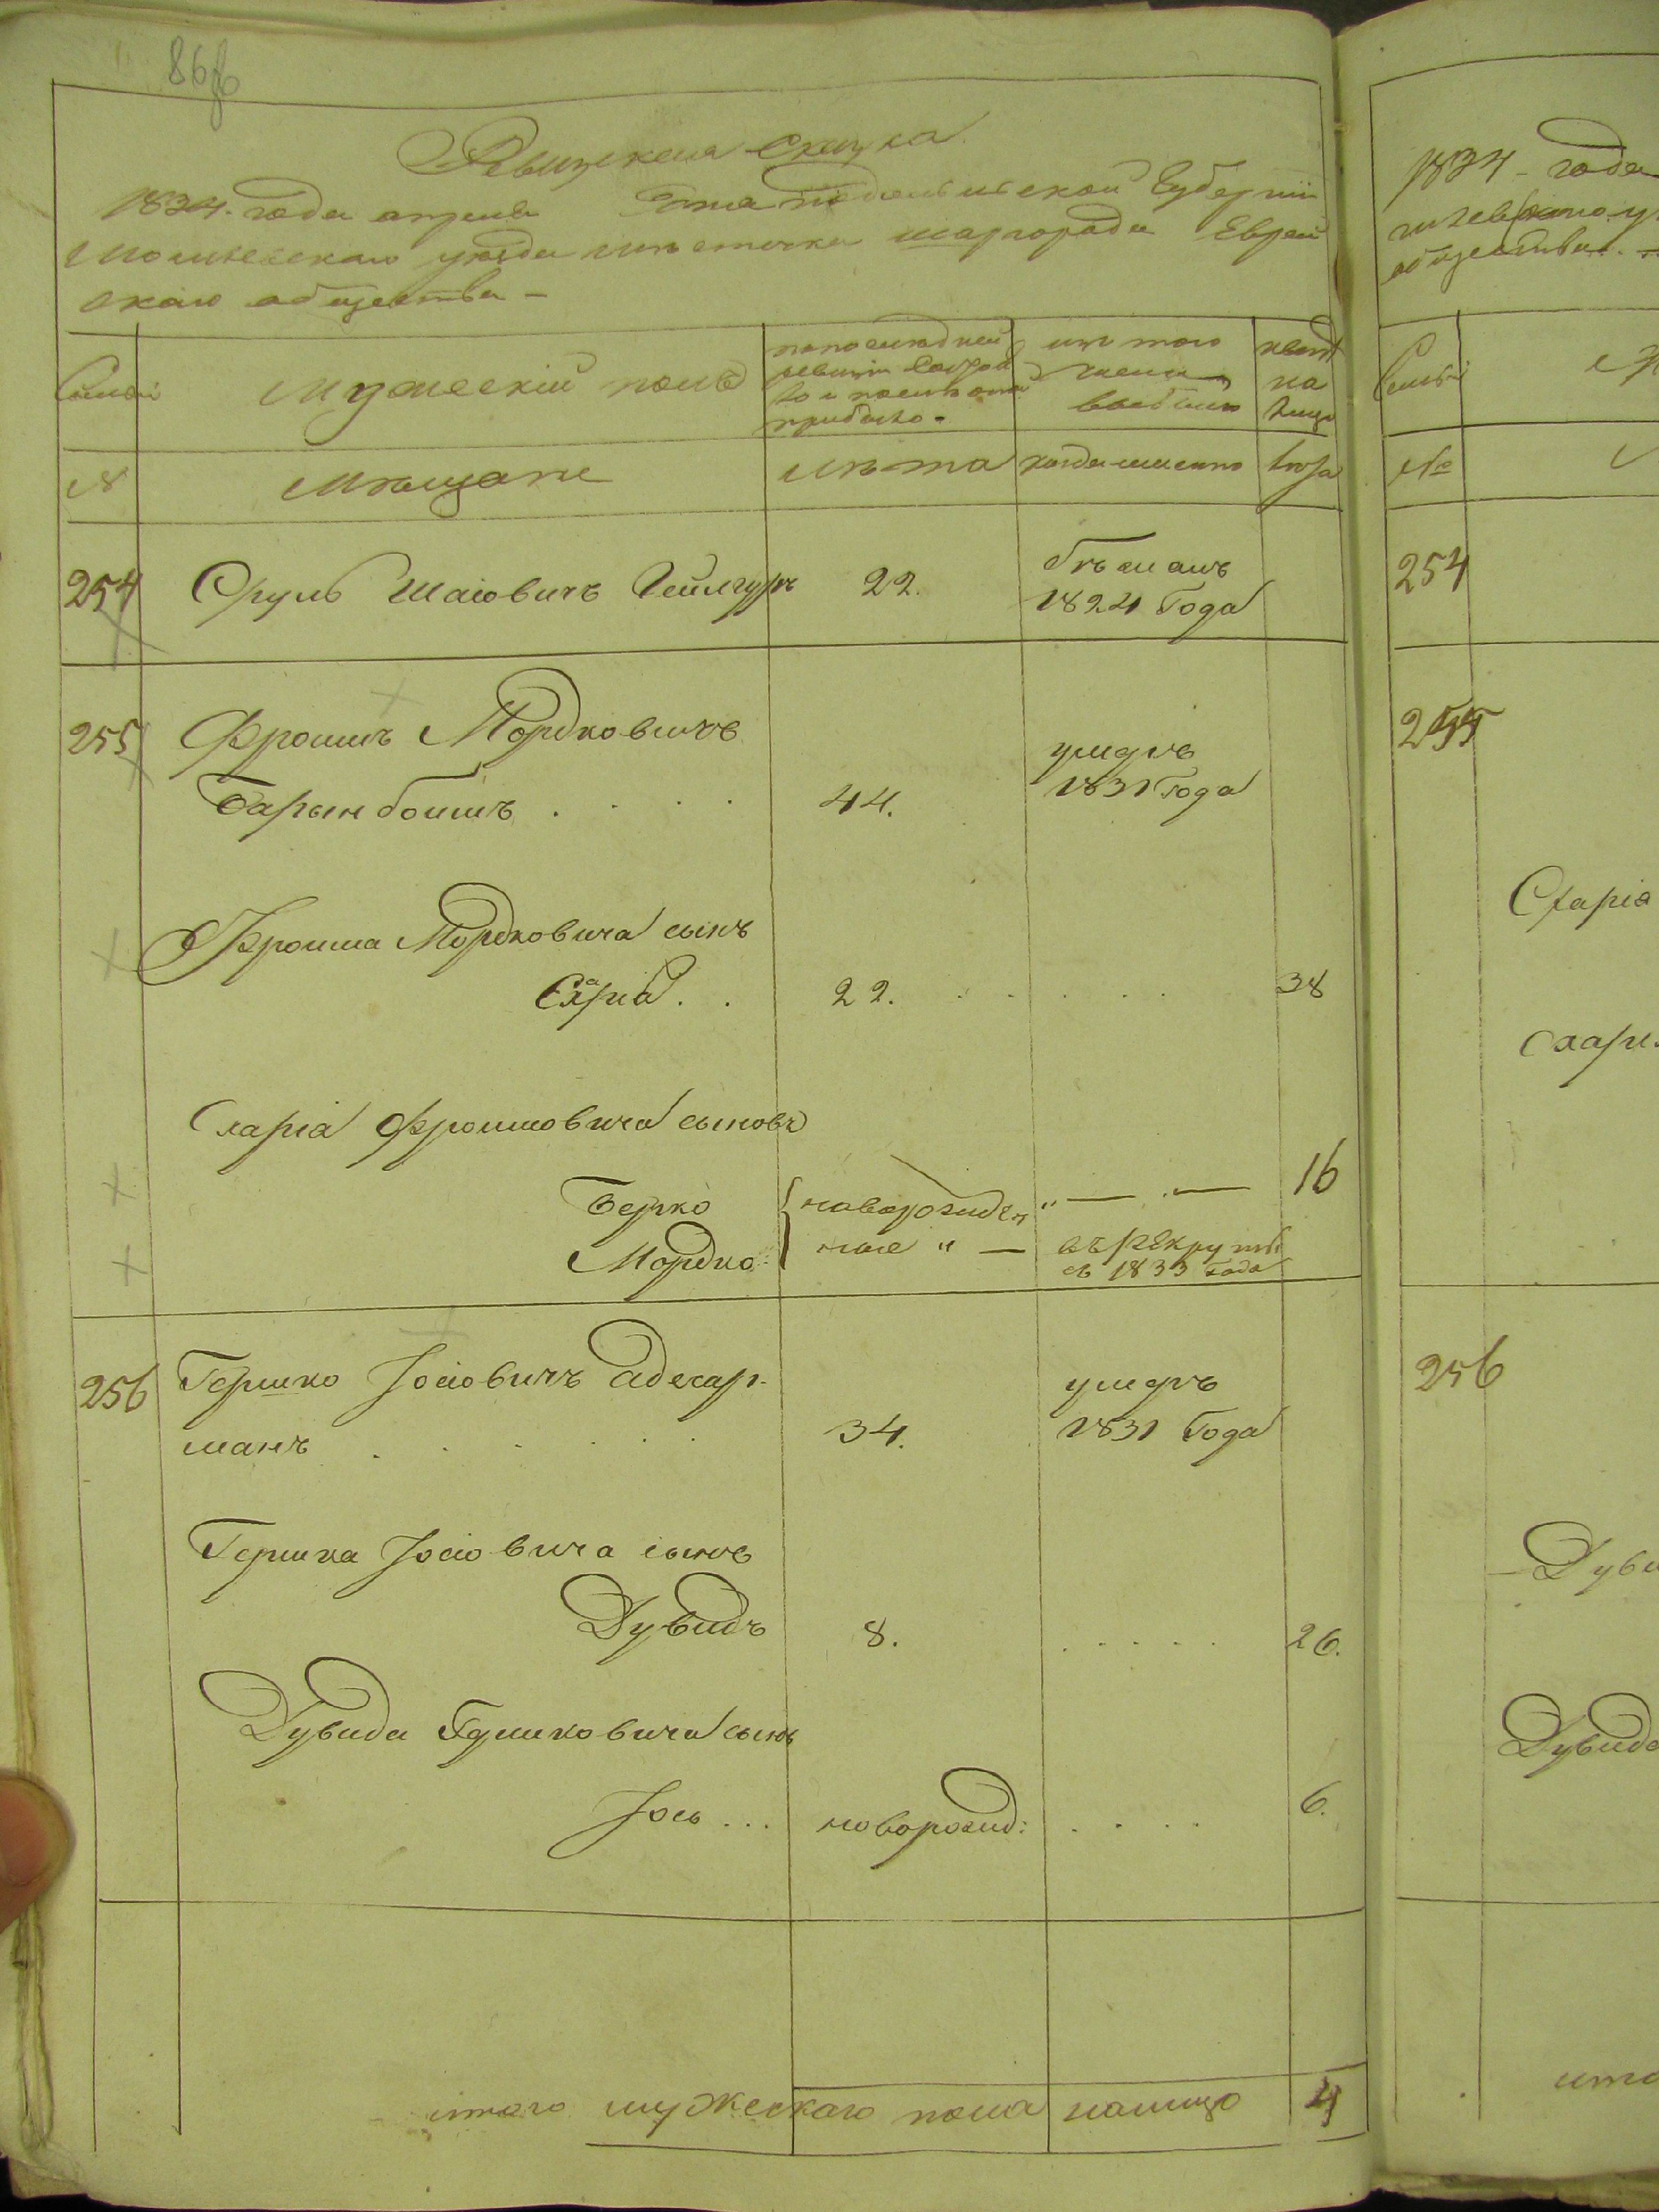 86об
Ревизская Сказка
1834. года апреля дня Подольской Губернии
Могилевскаго уезда местечка Шаргорода Еврей
скаго общества –
Семьи
Мужескій полъ
по последней
ревизіи состоя
ло и после оной
прибыло.
изъ того
числа
выбыло
ныне
на
лицо
№
Мещане
Лѣта
когда именно
лѣта
254
Сруль Шаіовичъ
22.
бѣжалъ
1824 Года
255
Фроимъ Мордковичъ
Барынбоимъ . . . .
44.
умеръ
1831 Года
Фроима Мордковича сынъ
Схаріа . .
22. . . . . .
38
Схаріа Фроимовича сыновья
Берко
новорожден
16
Мордко
ные " —
въ рекруты
съ 1833 года
256
Гершко Іосіовичъ
манъ . . . . . .
34.
умеръ
1831 Года
Гершка Іосіовича сынъ
Дувидъ
8. . . . . .
26.
Дувида Гершковича сынъ
Іось ...
новорожд: . . . .
6.
итого мужескаго пола налицо
4
1834 – года
общества. –
Семьи
№
254
255
Схаріа
Схарі
256
Дуви
Дувида
ито